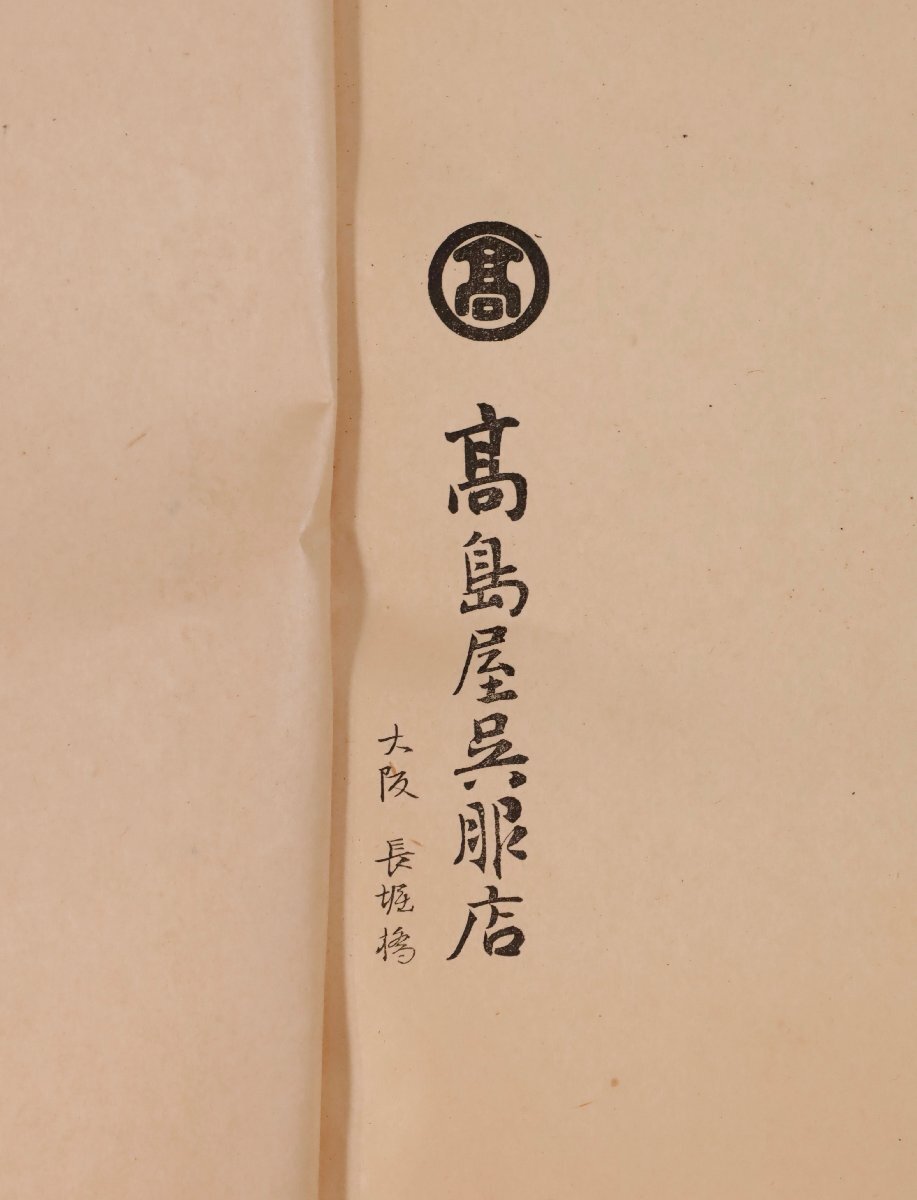 髙
髙島屋呉服店
大阪 長堀橋